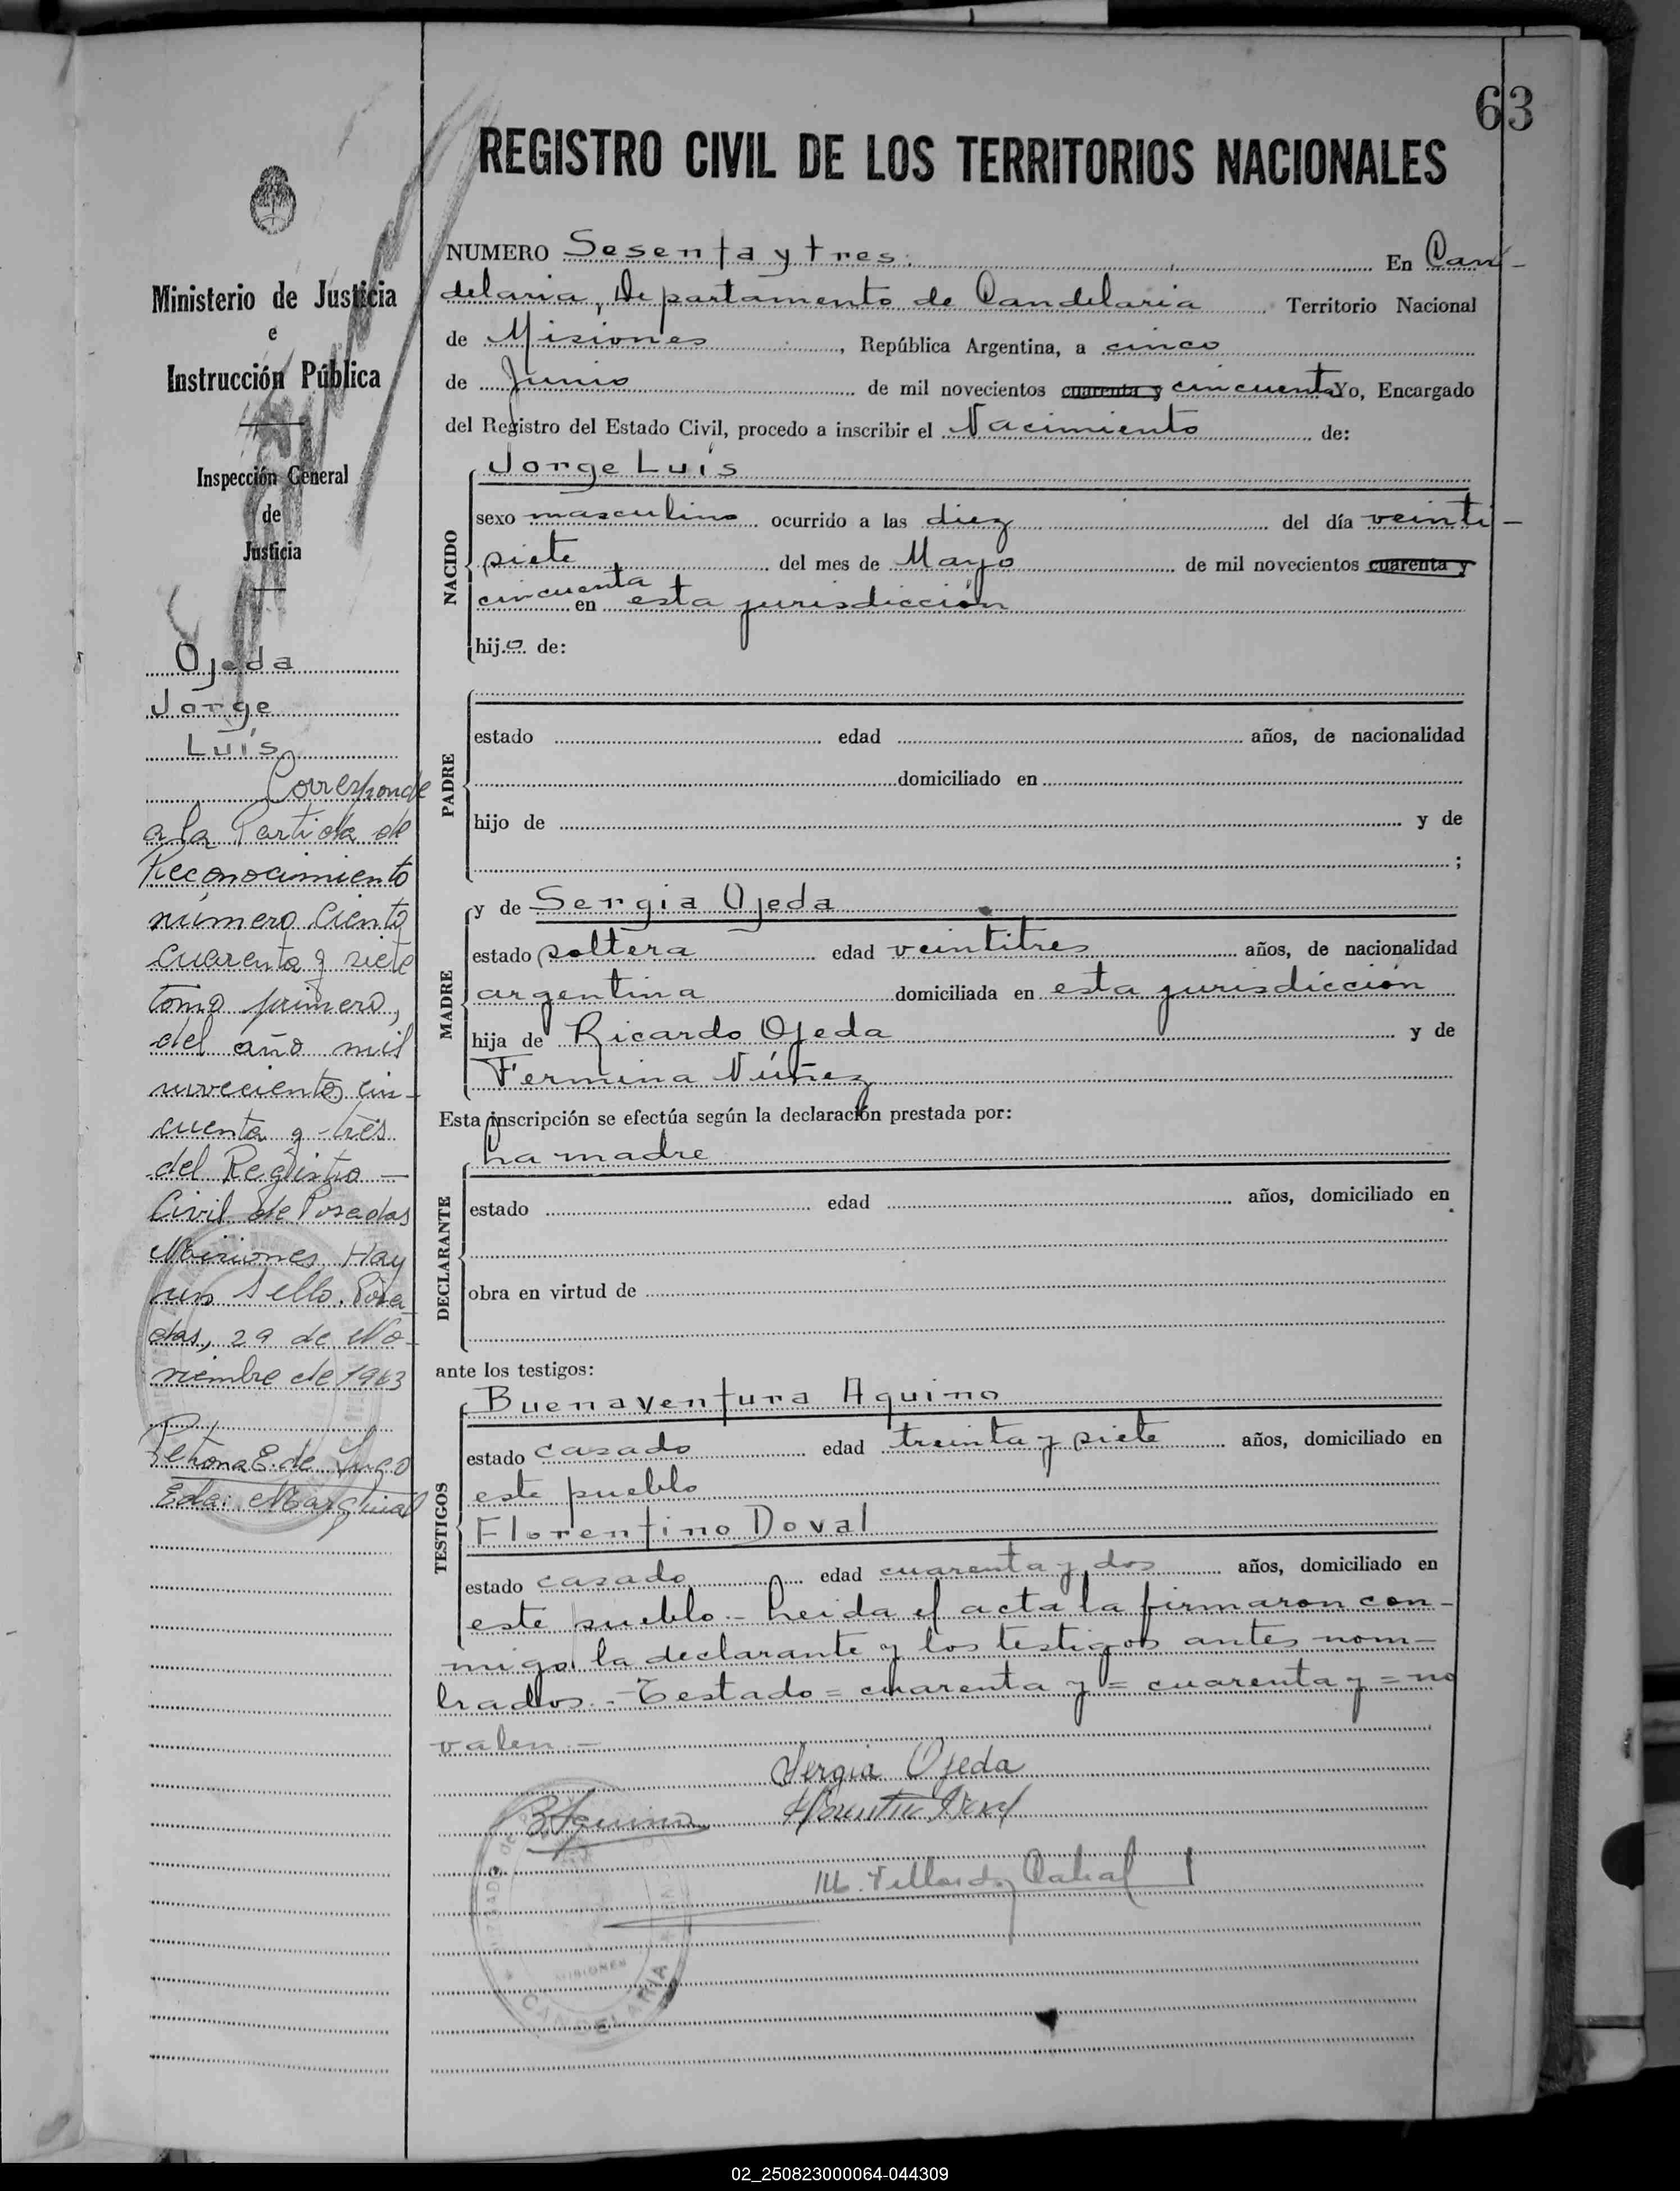 63
REGISTRO CIVIL DE LOS TERRITORIOS NACIONALES
Ministerio de Justicia
e
Instrucción Pública
Inspección General
de
Justicia
Ojeda
Jorge
Luís
Corresponde
a la Partida de
Reconocimiento
número Ciento
cuarenta y siete
tomo primero,
del año mil
novecientos cin-
cuenta y tres
del Registro —
Civil de Posadas
Misiones Hay
un Sello. Posa-
das, 29 de No-
viembre de 1963
E. de Lugo
Eda: Marginal
NUMERO Sesenta y tres. En Can-
delaria, Departamento de Candelaria Territorio Nacional
de Misiones, República Argentina, a cinco
de Junio de mil novecientos cuarenta y cincuenta Yo, Encargado
del Registro del Estado Civil, procedo a inscribir el Nacimiento de:
NACIDO
Jorge Luis
sexo masculino ocurrido a las diez del día veinti-
siete del mes de Mayo de mil novecientos cuarenta y
cincuenta en esta jurisdicción
hijo de:
PADRE
estado edad años, de nacionalidad
domiciliado en
hijo de y de
;
MADRE
y de Sergia Ojeda
estado soltera edad veintitres años, de nacionalidad
argentina domiciliada en esta jurisdicción
hija de Ricardo Ojeda y de
Fermina Núñez
Esta inscripción se efectúa según la declaración prestada por:
DECLARANTE
La madre
estado edad años, domiciliado en
obra en virtud de
ante los testigos:
TESTIGOS
Buenaventura Aquino
estado casado edad treinta y siete años, domiciliado en
este pueblo
Florentino Doval
estado casado edad cuarenta y dos años, domiciliado en
este pueblo.- Leida el acta la firmaron con-
migo la declarante y los testigos antes nom-
brados.- Testado = cuarenta y = cuarenta y = no
valen.-
Sergia Ojeda
B Aquino
Cabral
MISIONES
CANDELARIA
02_250823000064-044309